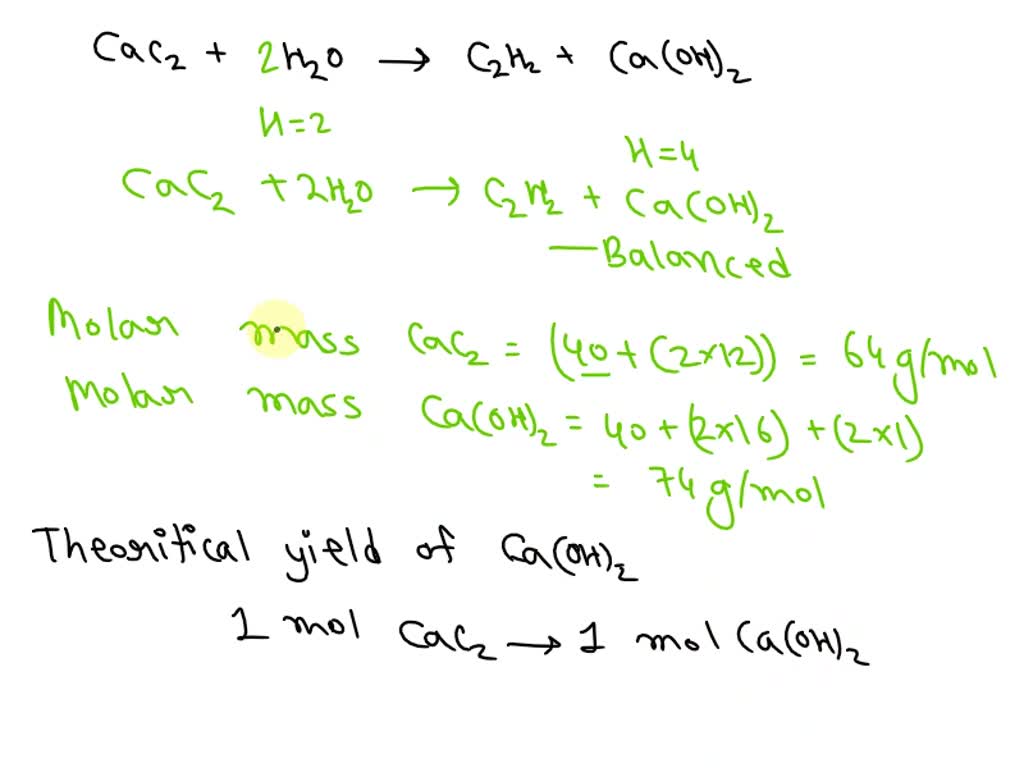 CaC₂ + 2H₂O → C₂H₂ + Ca(OH)₂
H=2
H=4
CaC₂ + 2H₂O → C₂H₂ + Ca(OH)₂
—Balanced
Molar mass CaC₂ = (40 + (2×12)) = 64 g/mol
Molar mass Ca(OH)₂ = 40 + (2×16) + (2×1)
= 74 g/mol
Theoritical yield of Ca(OH)₂
1 mol CaC₂ → 1 mol Ca(OH)₂